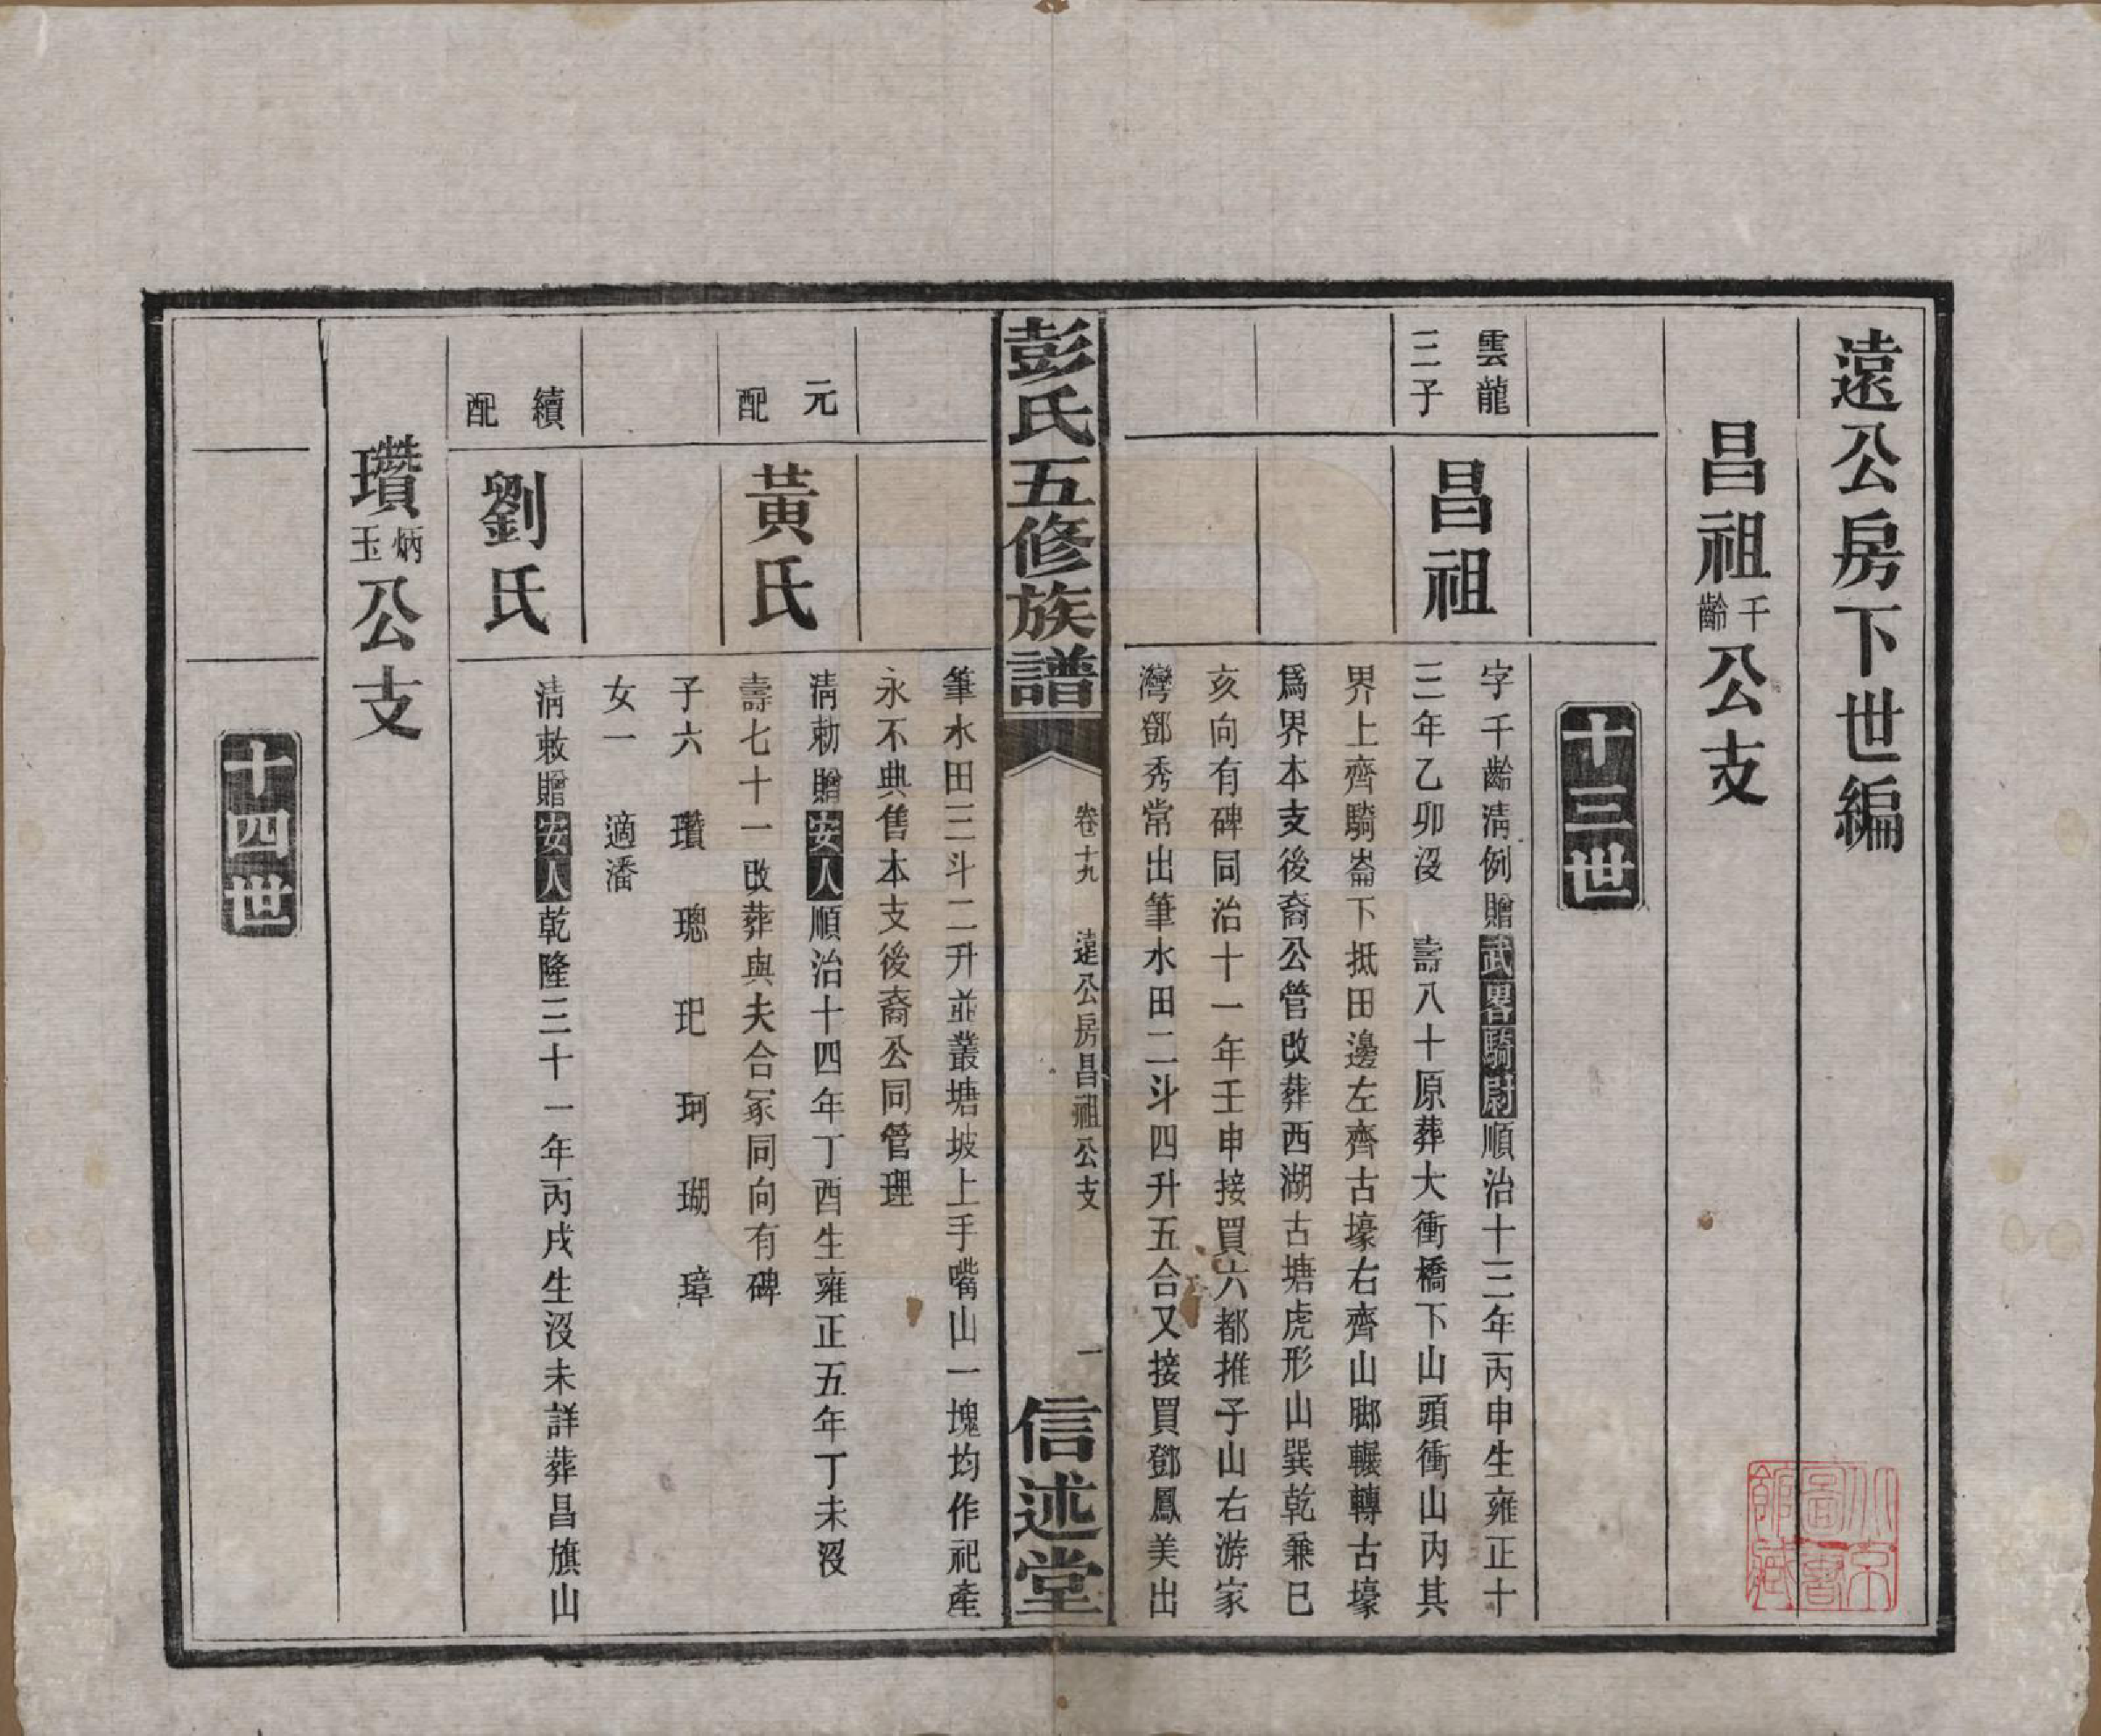 遠公房下世編
昌祖千齡公支
十三世
雲龍
三子
昌祖
字千齡清例贈武畧騎尉順治十三年丙申生雍正十
三年乙卯沒　壽八十原葬大衝橋下山頭衝山內其
界上齊騎崙下抵田邊左齊古壕右齊山脚輾轉古壕
爲界本支後裔公管改葬西湖古塘虎形山巽乾兼巳
亥向有碑同治十一年壬申接買六都推子山右游家
灣鄧秀常出筆水田二斗四升五合又接買鄧鳳美出
彭氏五修族譜
卷十九　遠公房昌祖公支
一
信述堂
筆水田三斗二升並叢塘坡上手嘴山一塊均作祀產
永不典售本支後裔公同管理
元
配
黃氏
清勅贈安人順治十四年丁酉生雍正五年丁未沒
壽七十一改葬與夫合冢同向有碑
子六　瓚　璁　玘　珂　瑚　璋
女一　適潘
續
配
劉氏
清敕贈安人乾隆三十一年丙戌生沒未詳葬昌旗山
瓚炳玉公支
十四世
北京
圖書
館藏